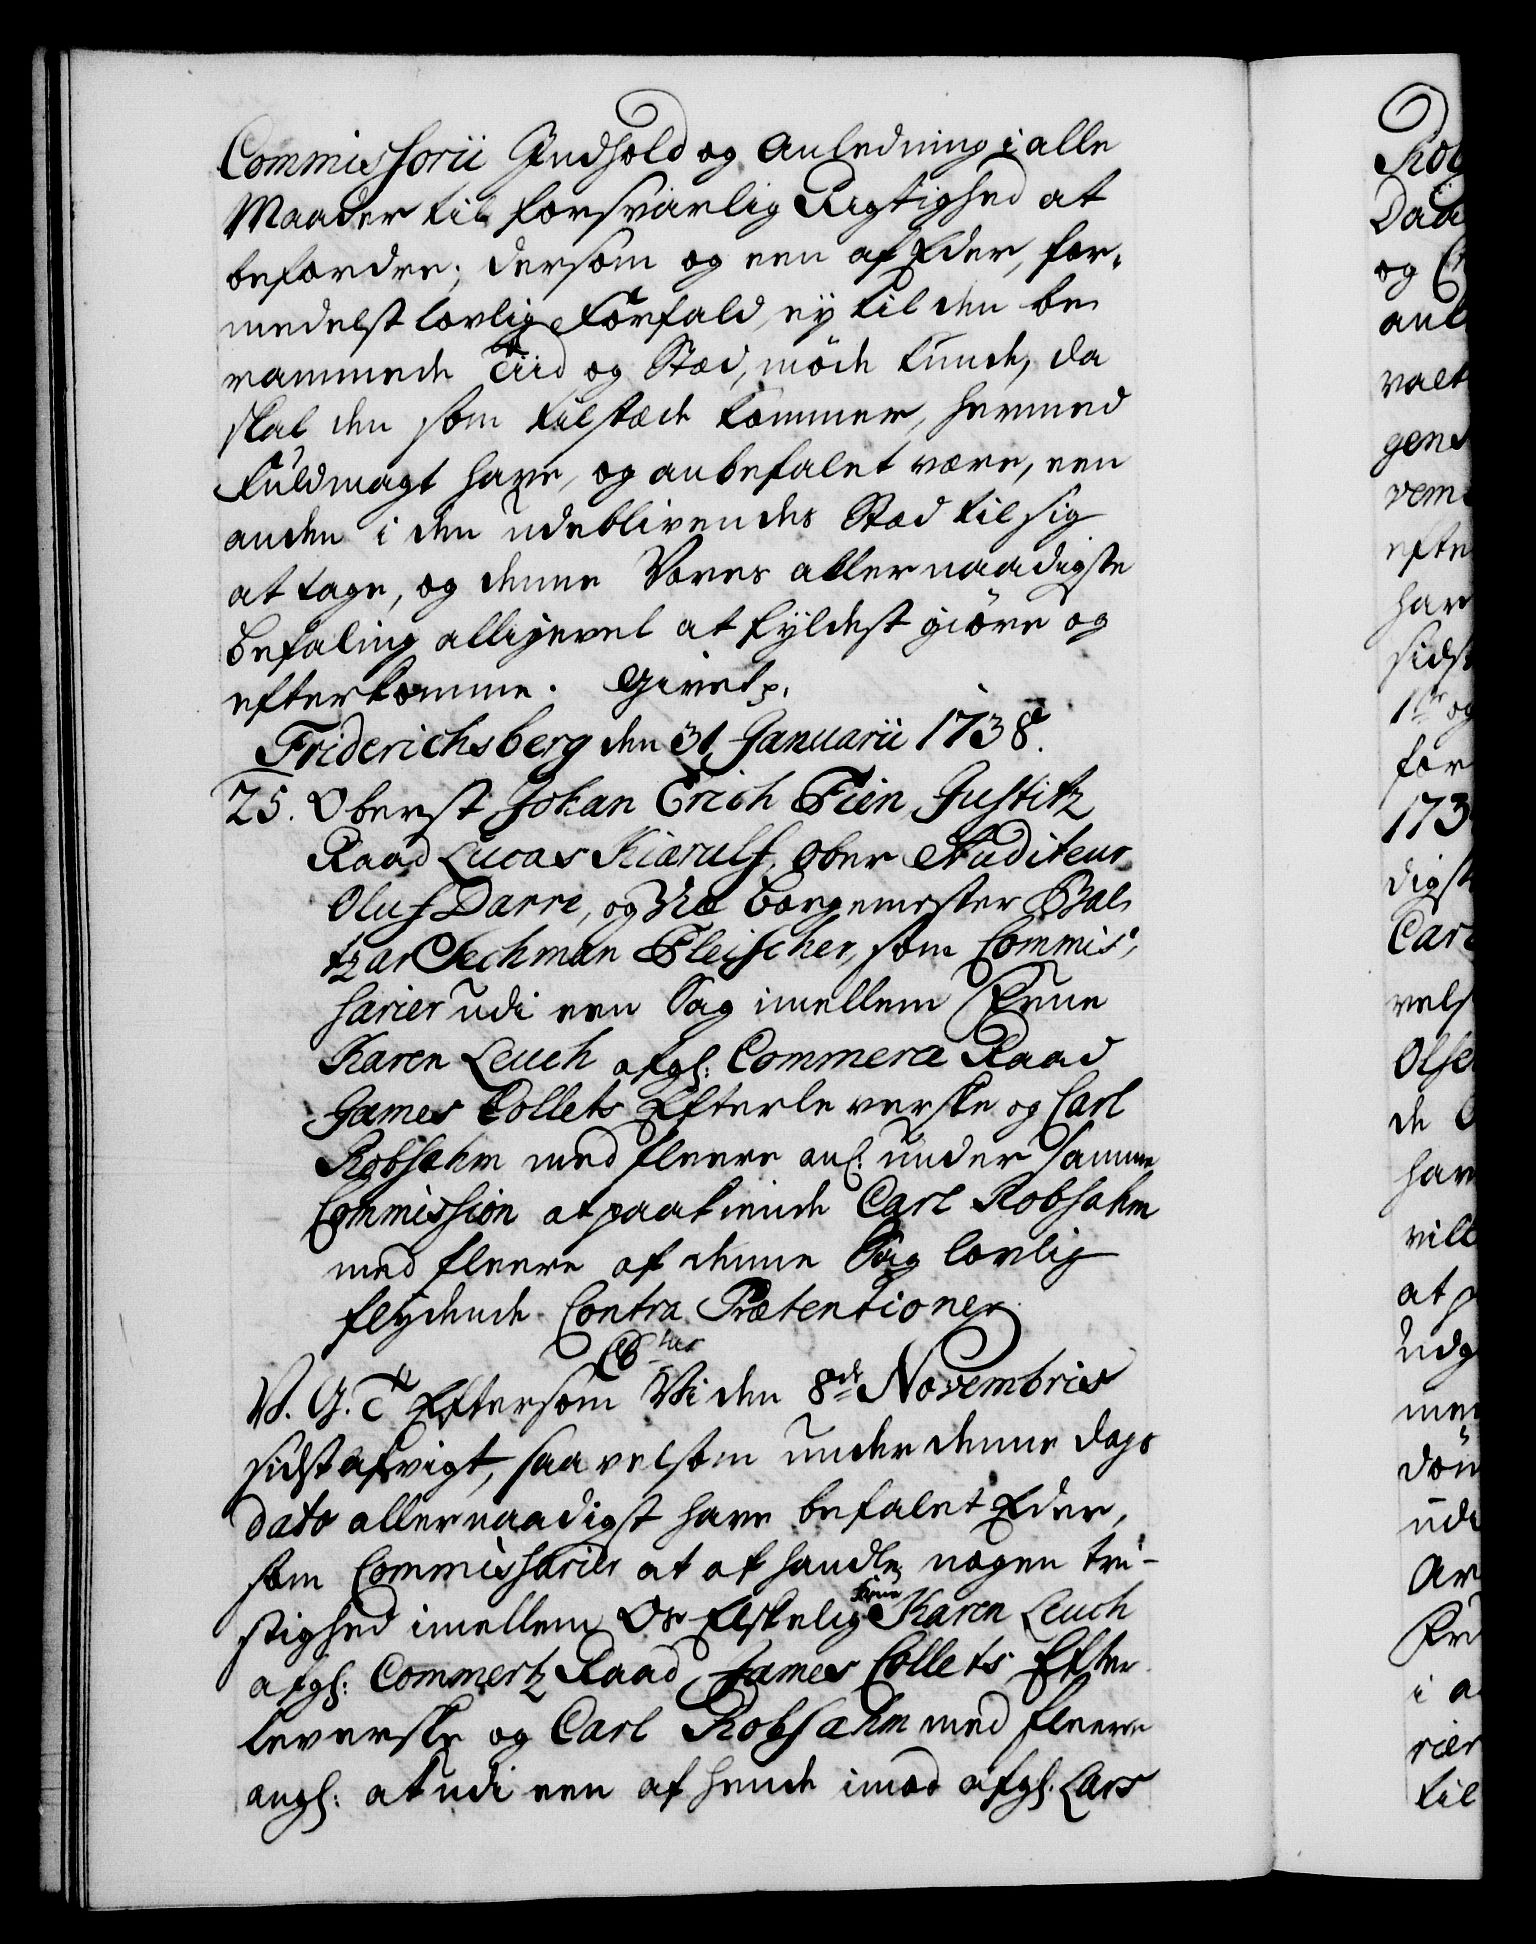 Commissorii Indhold og Anledning i alle
Maader til forsvarlig Rigtighed at
befordre; dersom og een af Eder, for-
medelst lovlig Forfald, ey til den be
rammede Tiid og Sted, møde kunde, da
skal den som tilstæde kommer, hermed
Fuldmagt have, og anbefalet være, een
anden i den udeblivendes Sted til sig
at tage, og denne Vores allernaadigste
Befaling alligevel at fyldest giöre og
efterkomme. Givet p.
Friderichsberg den 31 Januarii 1738.
25. Oberst Johan Erich Fien, Justitz
Raad Lucas Kiærulf, Ober Auditeur
Oluf Darre, og Borgemester Bal
tzar Sechman Fleischer, som Commis-
sarier udi een Sag imellem Frue
Karen Leuch afg: Commerce Raad
James Collets Efterleverske og Carl
Robsahm med fleere anl. under samme
Commission at paakiende Carl Robsahm
med fleere af denne Sag lovlig
flydende Contra Prætentioner
V. G. T. Eftersom Vi den 8de Novembris
sidst afvigt, saavelsom under denne Dags
dato allernaadigst have befalet Eder,
som Commissarier at afhandle nogen tvi-
stighed imellem Os Elskelig Frue Karen Leuch
afg: Commertz Raad James Collets Efter
leverske og Carl Robsahm med fleere
angl: at udi een af hende imod afg. Lars